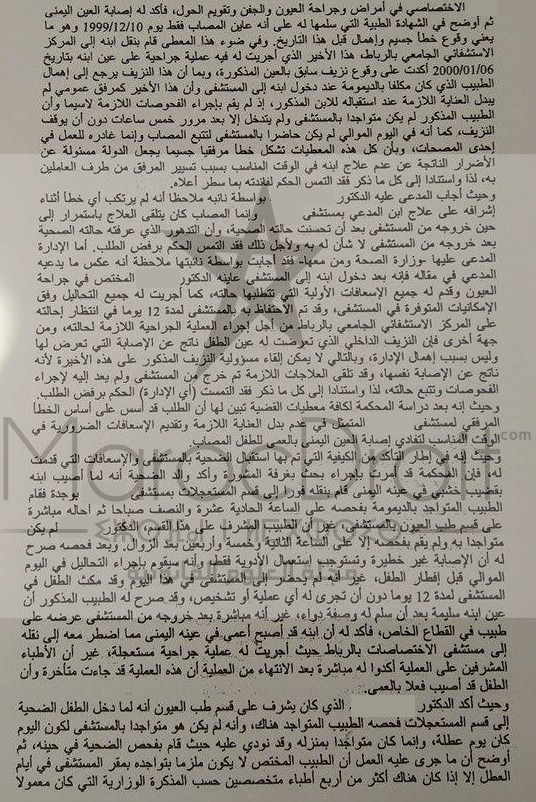 الاختصاصي في أمراض وجراحة العيون والجفن وتقويم الحول، فأكد له إصابة العين اليمنى
ثم أوضح في الشهادة الطبية التي سلمها له على أنه عاين المصاب فقط يوم 1999/12/10 وهو ما
يعني وقوع خطأ جسيم وإهمال قبل هذا التاريخ. وفي ضوء هذا المعطى قام بنقل ابنه إلى المركز
الاستشفائي الجامعي بالرباط، هذا الأخير الذي أجريت له فيه عملية جراحية على عين ابنه بتاريخ
2000/01/06 أكدت على وقوع نزيف سابق بالعين المذكورة، وبما أن هذا النزيف يرجع إلى إهمال
الطبيب الذي كان مكلفا بالديمومة عند دخول ابنه إلى المستشفى وأن هذا الأخير كمرفق عمومي لم
يبدل العناية اللازمة عند استقباله للابن المذكور، إذ لم يقم بإجراء الفحوصات اللازمة لاسيما وأن
الطبيب المذكور لم يكن متواجدا بالمستشفى ولم يتدخل إلا بعد مرور خمس ساعات دون أن يوقف
النزيف، كما أنه في اليوم الموالي لم يكن حاضرا بالمستشفى لتتبع المصاب وإنما غادره للعمل في
إحدى المصحات، وبأن كل هذه المعطيات تشكل خطأ مرفقيا جسيما يجعل الدولة مسئولة عن
الأضرار الناتجة عن عدم علاج ابنه في الوقت المناسب بسبب تسيير المرفق من طرف العاملين
به، لذا واستنادا إلى كل ما ذكر فقد التمس الحكم لفائدته بما سطر أعلاه.
وحيث أجاب المدعى عليه الدكتور بواسطة نائبه ملاحظا أنه لم يرتكب أي خطأ أثناء
إشرافه على علاج ابن المدعي بمستشفى وإنما المصاب كان يتلقى العلاج باستمرار إلى
حين خروجه من المستشفى بعد أن تحسنت حالته الصحية، وأن التدهور الذي عرفته حالته الصحية
بعد خروجه من المستشفى لا شأن له به ولأجل ذلك فقد التمس الحكم برفض الطلب. أما الإدارة
المدعى عليها -وزارة الصحة ومن معها- فقد أجابت بواسطة نائبتها ملاحظة أنه عكس ما يدعيه
المدعي في مقاله فإنه بعد دخول ابنه إلى المستشفى عاينه الدكتور المختص في جراحة
العيون وقدم له جميع الإسعافات الأولية التي تتطلبها حالته، كما أجريت له جميع التحاليل وفق
الإمكانيات المتوفرة في المستشفى، وقد تم الاحتفاظ به بالمستشفى لمدة 12 يوما في انتظار إحالته
على المركز الاستشفائي الجامعي بالرباط من أجل إجراء العملية الجراحية اللازمة لحالته، ومن
جهة أخرى فإن النزيف الداخلي الذي تعرضت له عين الطفل ناتج عن الإصابة التي تعرض لها
وليس بسبب إهمال الإدارة، وبالتالي لا يمكن إلقاء مسؤولية النزيف المذكور على هذه الأخيرة لأنه
ناتج عن الإصابة نفسها، وقد تلقى العلاجات اللازمة ثم خرج من المستشفى ولم يعد إليه لإجراء
الفحوصات وتتبع حالته، لذا واستنادا إلى كل ما ذكر فقد التمست (أي الإدارة) الحكم برفض الطلب.
وحيث إنه بعد دراسة المحكمة لكافة معطيات القضية تبين لها أن الطلب قد أسس على أساس الخطأ
المرفقي لمستشفى المتمثل في عدم بدل العناية اللازمة وتقديم الإسعافات الضرورية في
الوقت المناسب لتفادي إصابة العين اليمنى بالعمى للطفل المصاب.
وحيث إنه في إطار التأكد من الكيفية التي تم بها استقبال الضحية بالمستشفى والإسعافات التي قدمت
له، فإن المحكمة قد أمرت بإجراء بحث بغرفة المشورة وأكد والد الضحية أنه لما أصيب ابنه
بقضيب خشبي في عينه اليمنى قام بنقله فورا إلى قسم المستعجلات بمستشفى بوجدة فقام
الطبيب المتواجد بالديمومة بفحصه على الساعة الحادية عشرة والنصف صباحا ثم أحاله مباشرة
على قسم طب العيون بالمستشفى، غير أن الطبيب المشرف على هذا القسم الدكتور لم يكن
متواجدا به ولم يقم بفحصه إلا على الساعة الثانية وخمسة وأربعين بعد الزوال. وبعد فحصه صرح
له أن الإصابة غير خطيرة وتستوجب استعمال الأدوية فقط، وأنه سيقوم بإجراء التحاليل في اليوم
الموالي قبل إفطار الطفل، غير أنه لم يحضر إلى المستشفى في هذا اليوم وقد مكث الطفل في
المستشفى لمدة 12 يوما دون أن تجرى له أي عملية أو تشخيص، وقد صرح له الطبيب المذكور أن
عين ابنه سليمة بعد أن سلم له وصفة دواء، غير أنه مباشرة بعد خروجه من المستشفى عرضه على
طبيب في القطاع الخاص، فأكد له أن ابنه قد أصبح أعمى في عينه اليمنى مما اضطر معه إلى نقله
إلى مستشفى الاختصاصات بالرباط حيث أجريت له عملية جراحية مستعجلة، غير أن الأطباء
المشرفين على العملية أكدوا له مباشرة بعد الانتهاء من العملية أن هذه العملية قد جاءت متأخرة وأن
الطفل قد أصيب فعلا بالعمى.
وحيث أكد الدكتور الذي كان يشرف على قسم طب العيون أنه لما دخل الطفل الضحية
إلى قسم المستعجلات فحصه الطبيب المتواجد هناك، وأنه لم يكن هو متواجدا بالمستشفى لكون اليوم
كان يوم عطلة، وإنما كان متواجدا بمنزله وقد نودي عليه حيث قام بفحص الضحية في حينه، ثم
أوضح أن ما جرى عليه العمل أن الطبيب المختص لا يكون ملزما بتواجده بمقر المستشفى في أيام
العطل إلا إذا كان هناك أكثر من أربع أطباء متخصصين حسب المذكرة الوزارية التي كان معمولا